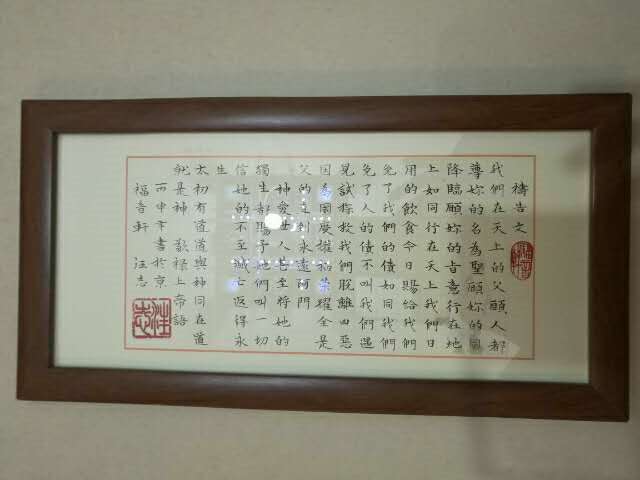 禱告文
我們在天上的父願人都
尊妳的名為聖願妳的國
降臨願妳的旨意行在地
上如同行在天上我們日
用的飲食今日賜給我們
免了我們的債如同我們
免了人的債不叫我們遇
見試探救我們脫離凶惡
因為國度權柄榮耀全是
父的直到永遠阿門
神愛世人甚至將她的
獨生都賜予她們叫一切
信她的不至滅亡返得永
生
太初有道道與神同在道
就是神 敬祿上帝語
丙申年書於京
福音軒 汪志
汪志